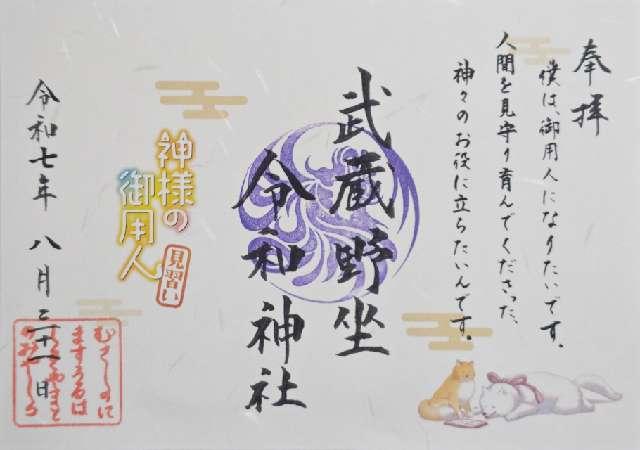 奉拝
僕は御用人になりたいです。
人間を見守り育んでくださった、
神々のお役に立ちたいんです。
武蔵野坐
令和神社
神様の
御用人
見習い
令和七年 八月三十一日
むさしのに
ますうるは